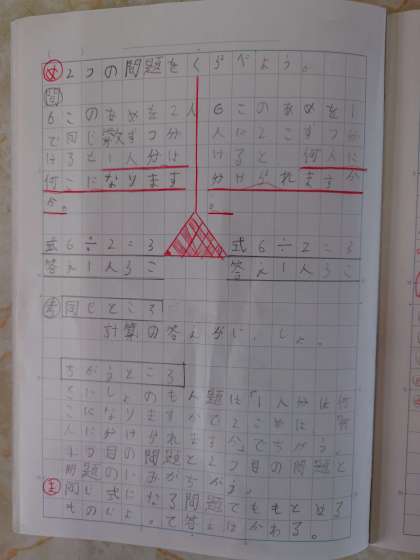 め 2つの問題をくらべよう。
問
6このあめを2人
で同じ数ずつ分
けると1人分は
何こになります
か。
式 6÷2=3
答え1人3こ
6このあめを1
人に2こずつ分
けると 何人に
分けられますか
。
式 6÷2=3
答え
同じところ
計算の答えがいっしょ。
ちがうところ
もん題は「1人分は何
こになりますか
人に分けられますか」でちがう。
1つ目の問題と2つ目の問題と
問題のいみがちがう。
ま 同じ式になる問題でももとめる
ものによって答えはかわる。